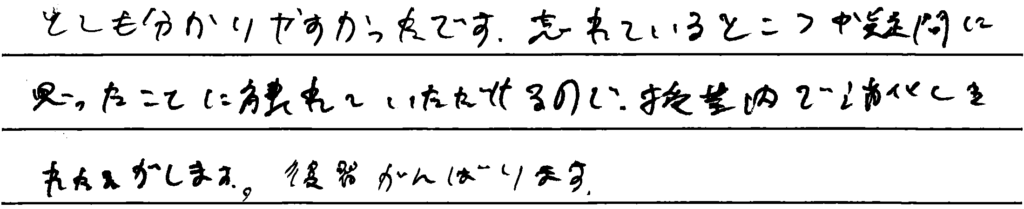 とても分かりやすかったです。忘れているところや疑問に
思ったことに触れていただけるので、授業内で消化しき
れた気がします。復習がんばります。